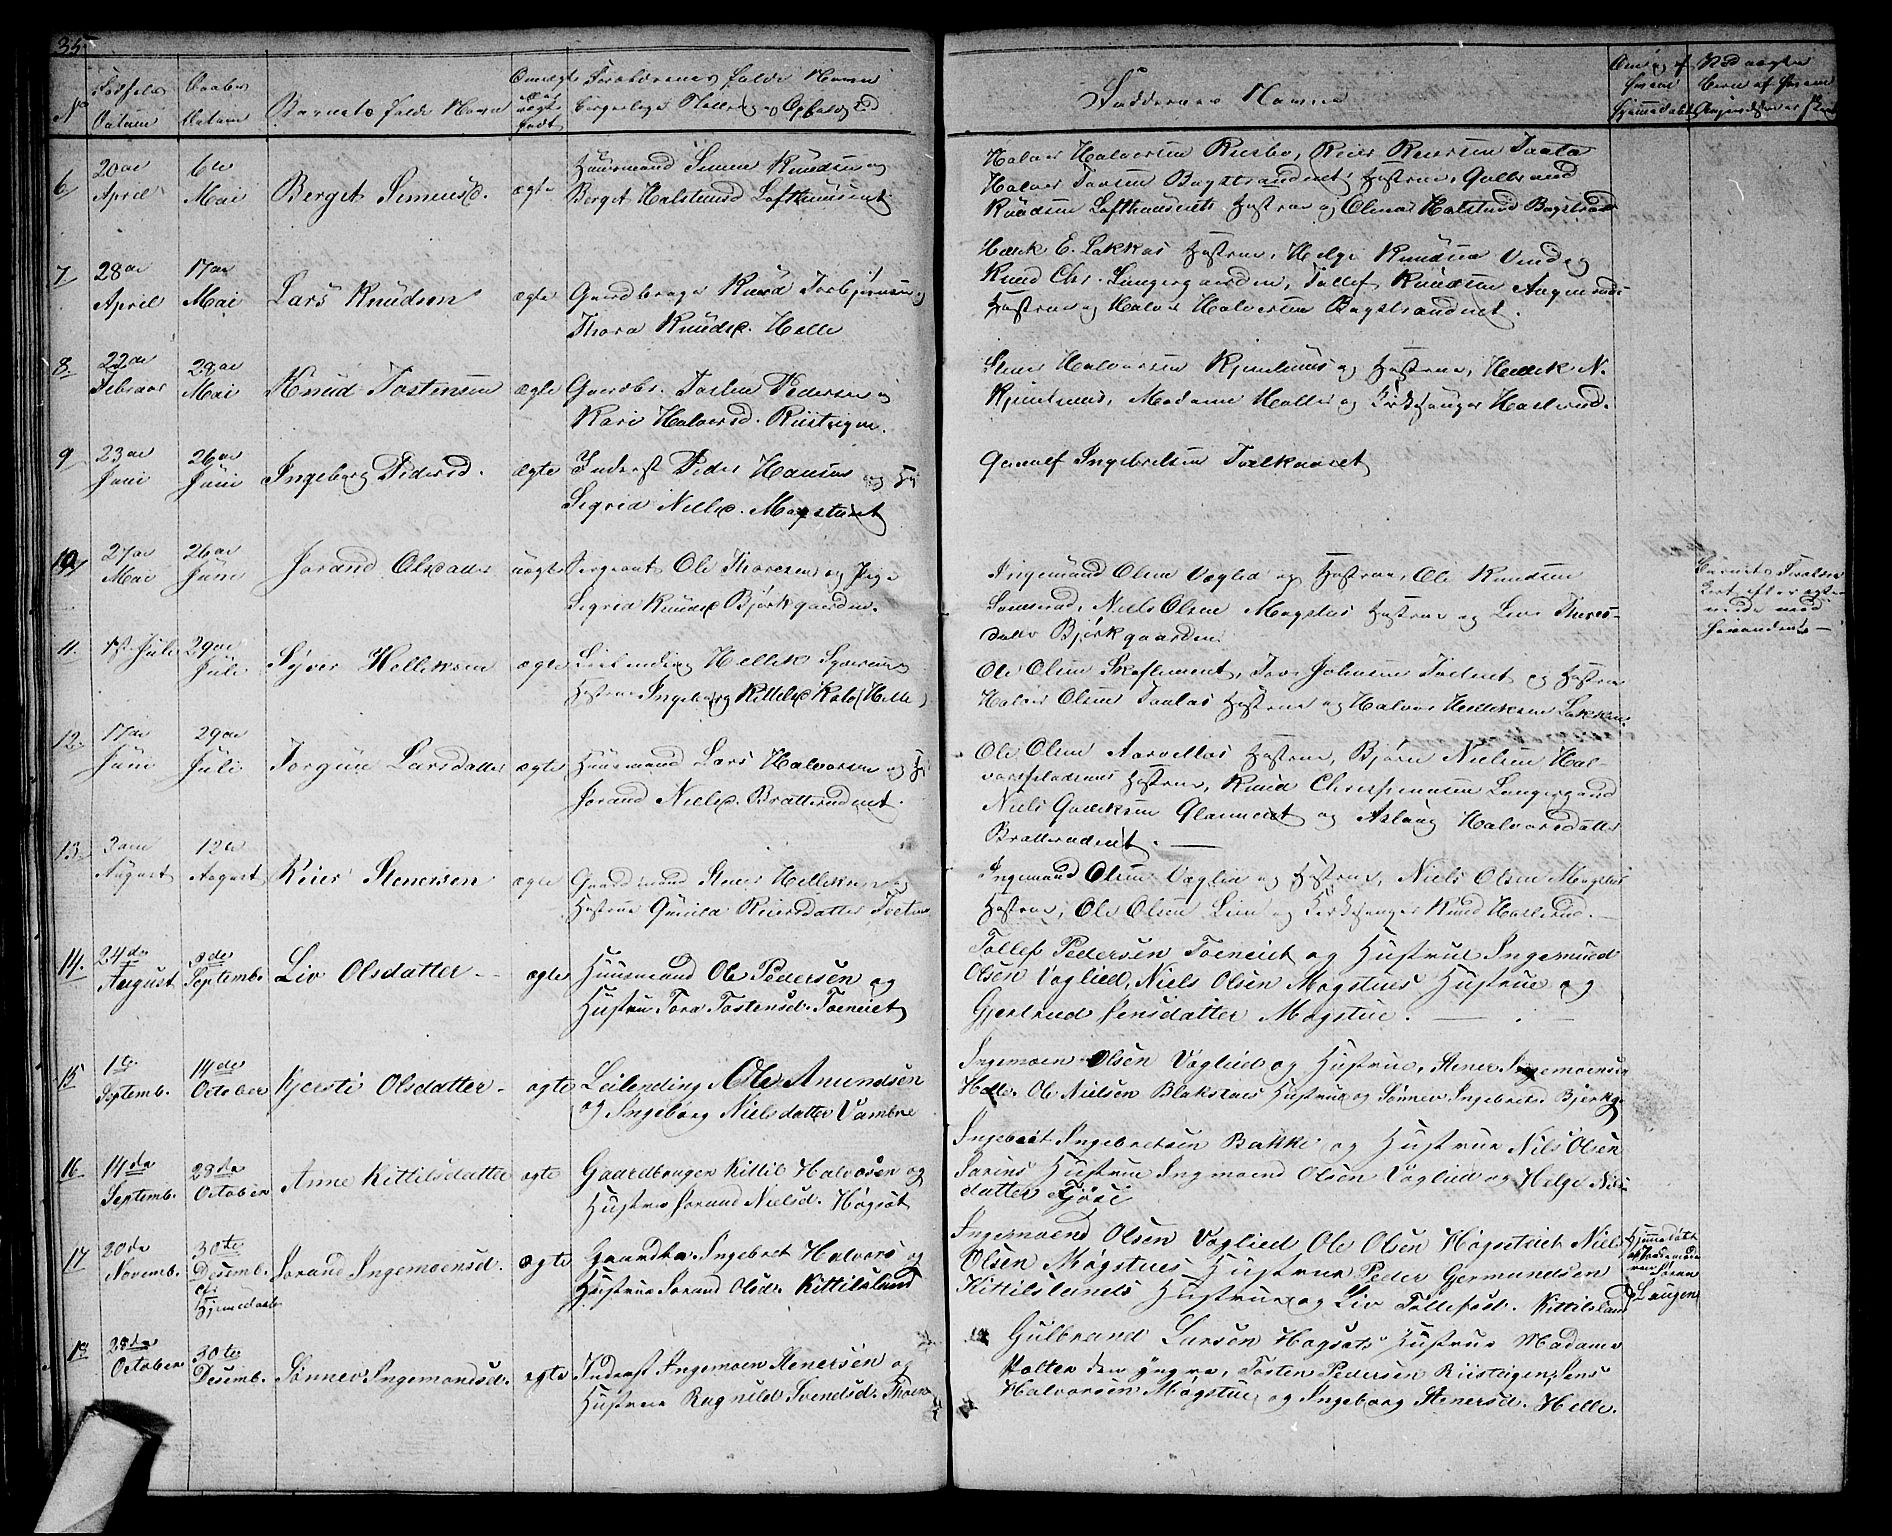 35
No
Fødsels Datum
Daabs Datum
Barnets fulde Navn
Om ægte eller uægte født
Forældrenes fulde Navn
borgerlige Stilling og Opholdssted
Faddernes Navne
6
20de April
6te Mai
Berget Simensd.
ægte
Huusmand Simen Knudsen og
Berget Halstensd Lofthuuseiet
Halvor Halvorsen Rusbø, Reier Reiersen Traala
Halvor Tovsen Bagstrandeiet, Hustrue, Gulbrand
Knudsen Lofthuuseiets Hustrue og Olena Halstensd Bagstrand
7
28de April
17de Mai
Lars Knudsen
ægte
Gaardbruger Knud Torbjørnsen og
Thora Knudsd. Helle
Hellek E. Lakkas Hustrue, Helge Knudsen
Knud Chr. Langergaarden, Tollef Knudsen
Hustrue og Halvor Halvorsen Bagstrandeiet.
8
22de Februar
29de Mai
Knud Tostensen
ægte
Gaardbr. Tosten Pedersen og
Kari Halvorsd. Riisteigen.
Stener Halvorsen Kjemhuus og Hustrue, Hellek N.
Madame Holter og Kirkesanger Haslerud.
9
23de Juni
26de Juni
Ingeborg Pedersd.
ægte
Inderst Peder Hansen og H
Sigrid Nielsd. Mogstueiet
Gunulf Ingebretsen
10
27de Mai
26de Juni
Jorand Olsdatter
uægte
Sergeant Ole Thoresen og Pige
Sigrid Knudsd Bjørkgaarden.
Ingemund Olsen Voglid og Hustrue, Ole Knudsen
Niels Olsen Mogstus Hustrue og Liv Thores-
datter Bjørkgaarden
Barnets Forældre
ere efter
med
hinanden
11.
1st Juli
29de Juli
Syver Helleksen
ægte
Leilending Hellek Syversen og
Hustrue Ingeborg Kittelsd Kalo (Helle)
Ole Olsen Skoflementet, Tov Johnsen Tvetneiet og Hustrue
Halvor Olsen Traalas Hustrue og Halvor Helleksen Lakken
12.
17de Juni
29de Juli
Jorgun Larsdatter
ægte
Huusmand Lars Halvorsen og H
Jorand Nielsd. Bratterudeiet.
Ole Olsen Aarvellas Hustrue, Bjørn Nielsen Hal-
vorspladsens Hustrue, Knud Christiansen Langergaard
Niels Gulleksen og Aslaug Halvorsdatter
Bratterudeiet. —
13.
August
12te August
Reier Stenersen
ægte
Gaardmand Stener Helleksen og
Hustrue Gunild Reiersdatter Tveten
Ingemund Olsen Voglid og Hustrue, Niels Olsen Mogstus
Hustrue, Ole Olsen Lien og Kirkesanger Knud Haslerud. —
14.
24de August
3de Septemb.
Liv Olsdatter —
ægte
Huusmand Ole Pedersen og
Hustru Tora Tostensd. Toeneiet
Tollef Pedersen Toeneiet og Hustrue Ingemund
Olsen Voglied, Niels Olsen Mogstues Hustrue og
Gjertrud Jensdatter Mogstue. —
15
1te Septemb.
14de October
Kjersti Olsdatter —
ægte
Leilending Ole Amundsen
og Ingeborg Nielsdatter Vambne
Ingemoen Olsen Voglied og Hustrue, Stener Ingemoensen
Helle, Ole Nielsen Blakstves Hustrue og Sønnev Ingebretsd Bjerkg
16
14de Septemb.
28de October
Anne Kittilsdatter
ægte
Gaardbruger Kittil Halvorsen og
Hustrue Jorand Nielsd. Høgsæt
Ingebret Ingebretsen Bakke og Hustrue Niels Olsen
Sørens Hustrue Ingmoend Olsen Voglied og Helge Niels-
datter Fjøse
17
20de Novemb.
30te Desemb.
ef:
Hjemedaab
Jorand Ingemoensd.
ægte
Gaardbr. Ingebret Halvors og
Hustrue Jorand Olsd. Kittilsland
Ingemoend Olsen Voglied Ole Olsen Høgseteiet Niels
Olsen Mogstues Hustrue Peder Germundsen
Kittilslands Hustrue og Liv Tollefsdt. Kittilsland
Hjemedøbt
af Jordemoder
Langen
18
28de October
30te Desemb.
Sønnev Ingemondsd.
ægte
Inderst Ingemoen Stenersen og
Hustrue Ragnild Svendsd. Thoen
Gulbrand Larsen Høgsets Hustrue Madame
Holter den yngre, Tosten Pedersen Riisteigen, Jens
Halvorsen Mogstue og Ingeborg Stenersd. Helle.